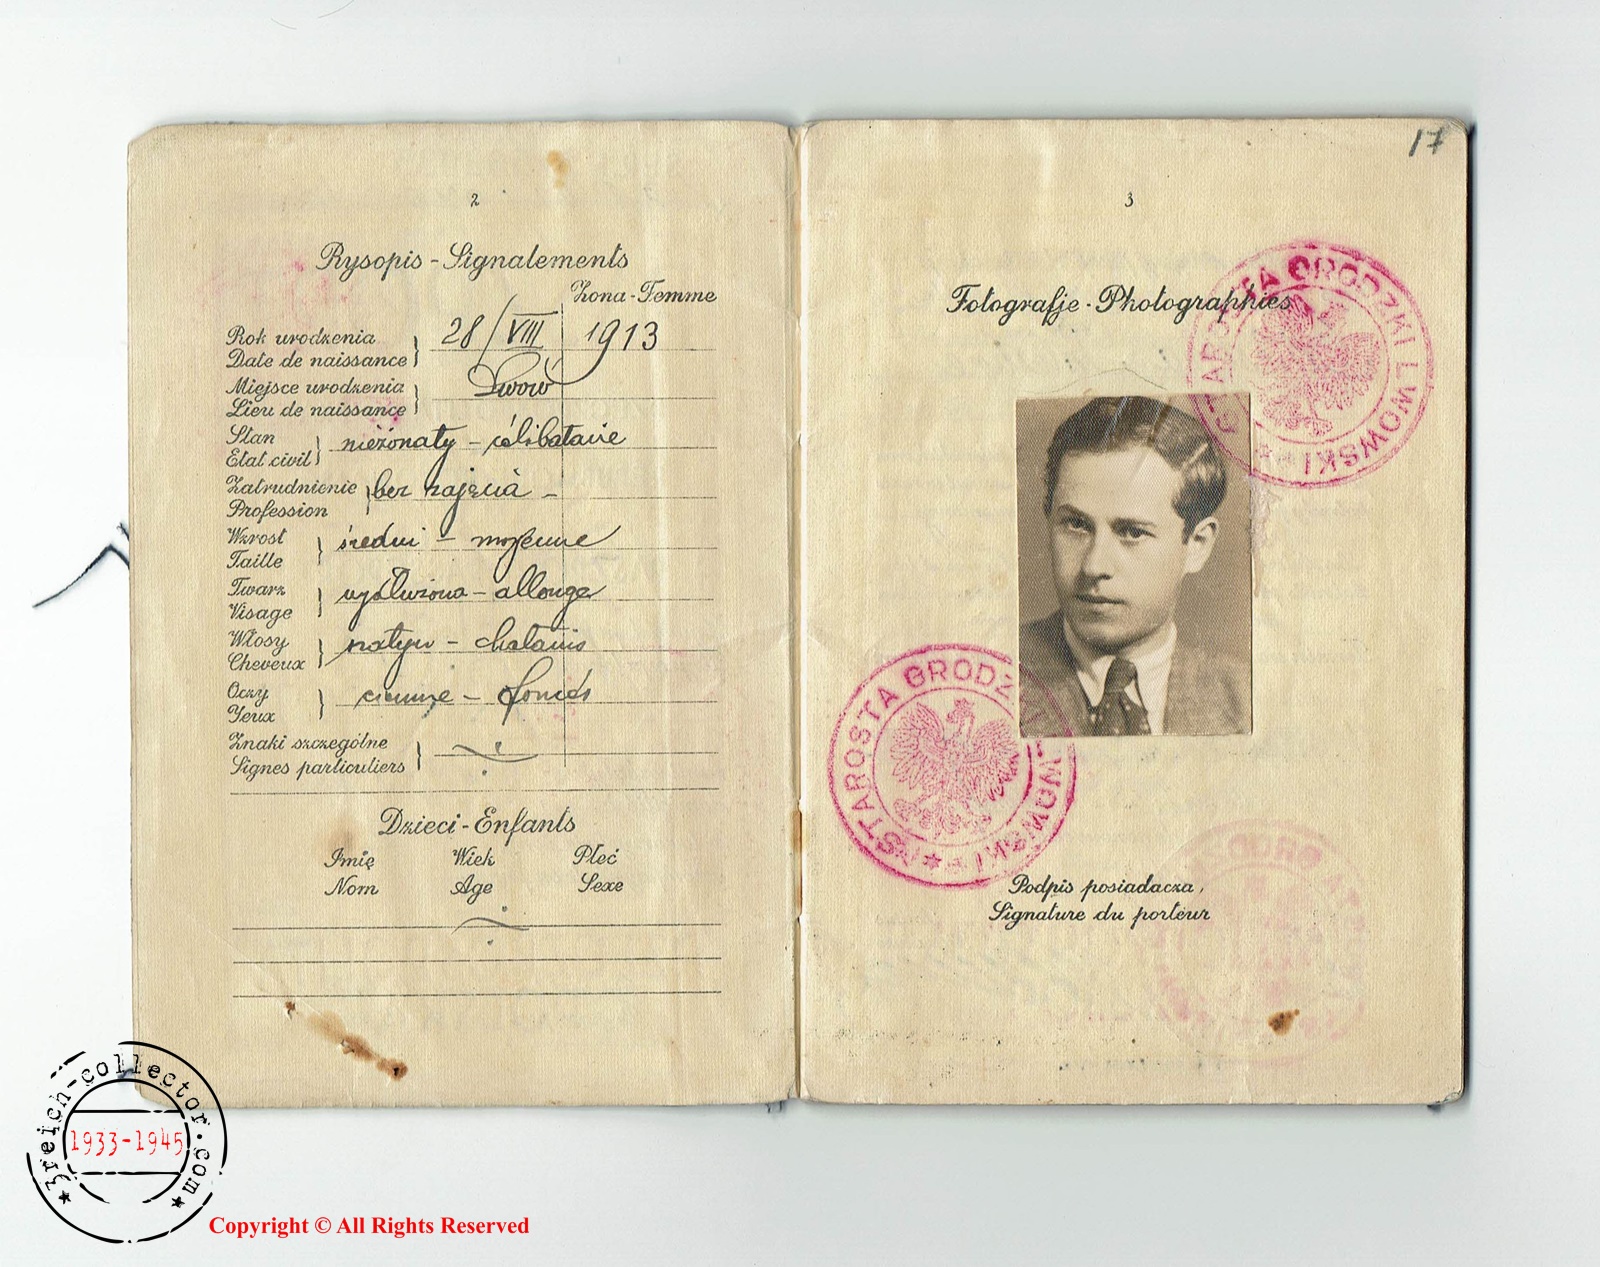 2
Rysopis - Signalements
Żona - Femme
Rok urodzenia
Date de naissance
28/VIII 1913
Miejsce urodzenia
Lieu de naissance
Lwów
Stan
Etat civil
nieżonaty - célibataire
Zatrudnienie
Profession
bez zajęcia -
Wzrost
Taille
średni -
Twarz
Visage
- allongé
Włosy
Cheveux
szatyn - chatains
Oczy
Yeux
ciemne - foncés
Znaki szczególne
Signes particuliers
Dzieci - Enfants
Imię Wiek Płeć
Nom Age Sexe
17
3
Fotografje - Photographies
STAROSTA GRODZKI LWOWSKI
STAROSTA GRODZKI LWOWSKI
Podpis posiadacza,
Signature du porteur
3reich-collector.com
1933-1945
Copyright © All Rights Reserved